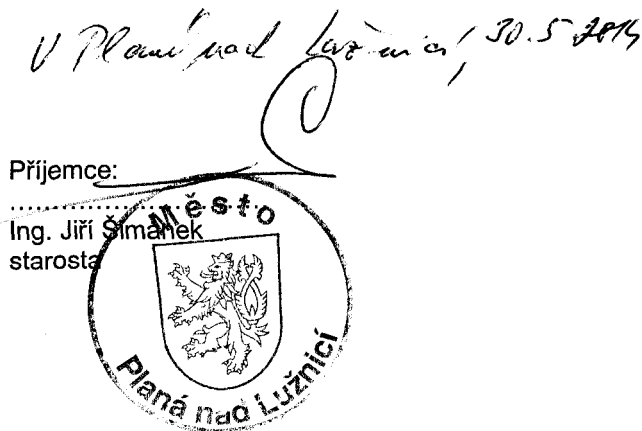 V Plané nad Lužnicí, 30.5.2014
Příjemce:
Ing. Jiří Šimánek
starosta
Město
Planá nad Lužnicí